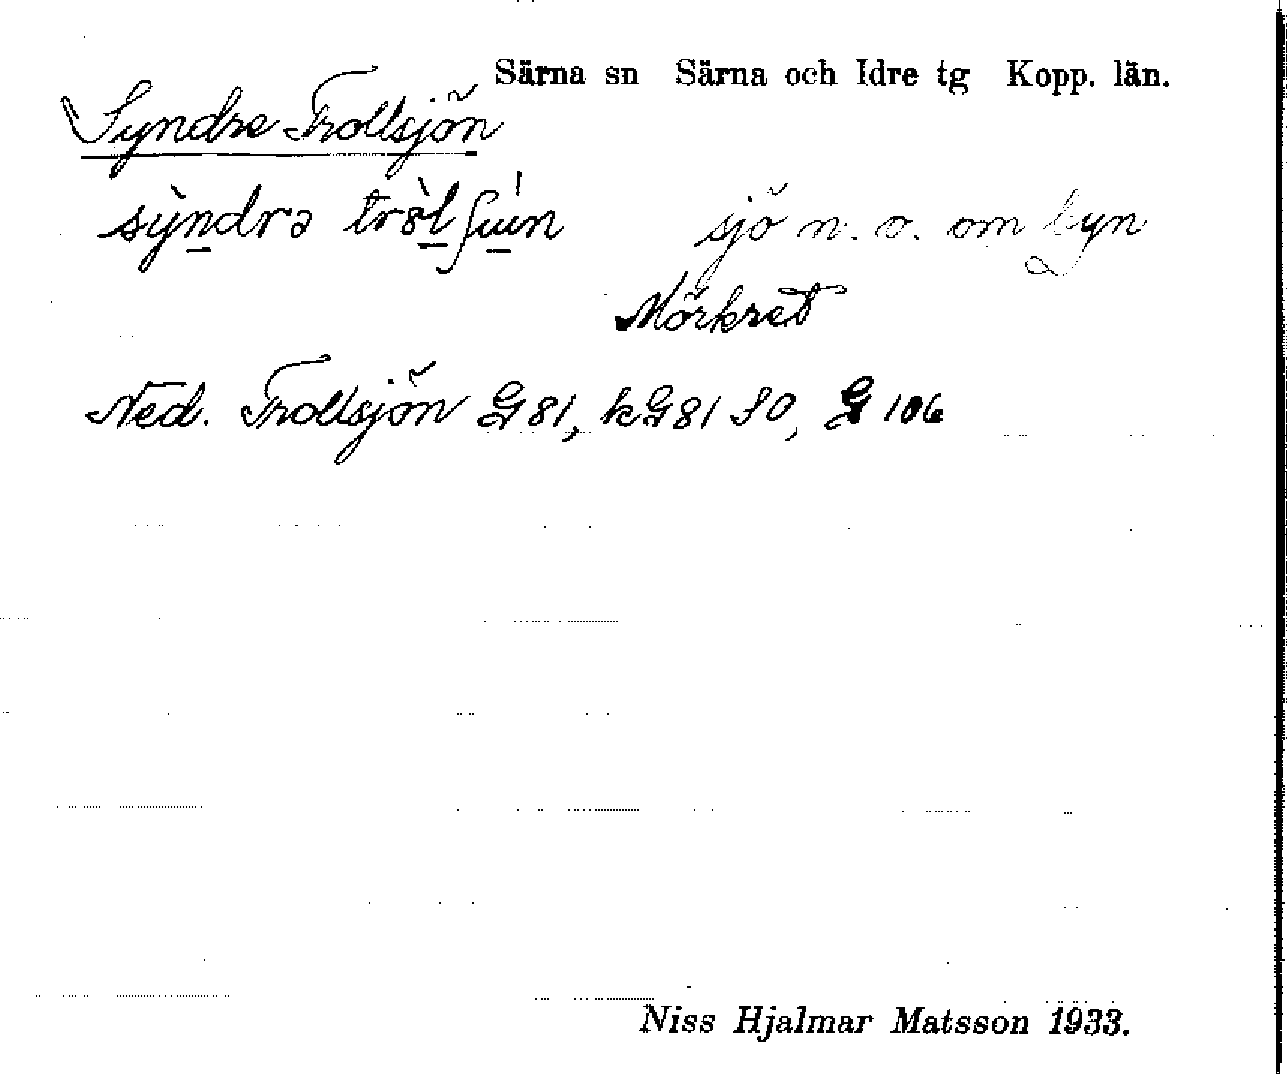 Särna sn Särna och Idre tg Kopp. län.
Syndre Trollsjön
sjö n. o. om byn
Mörkret
Ned. Trollsjön G 81, kG 81 SO, G 106
Niss Hjalmar Matsson 1933.